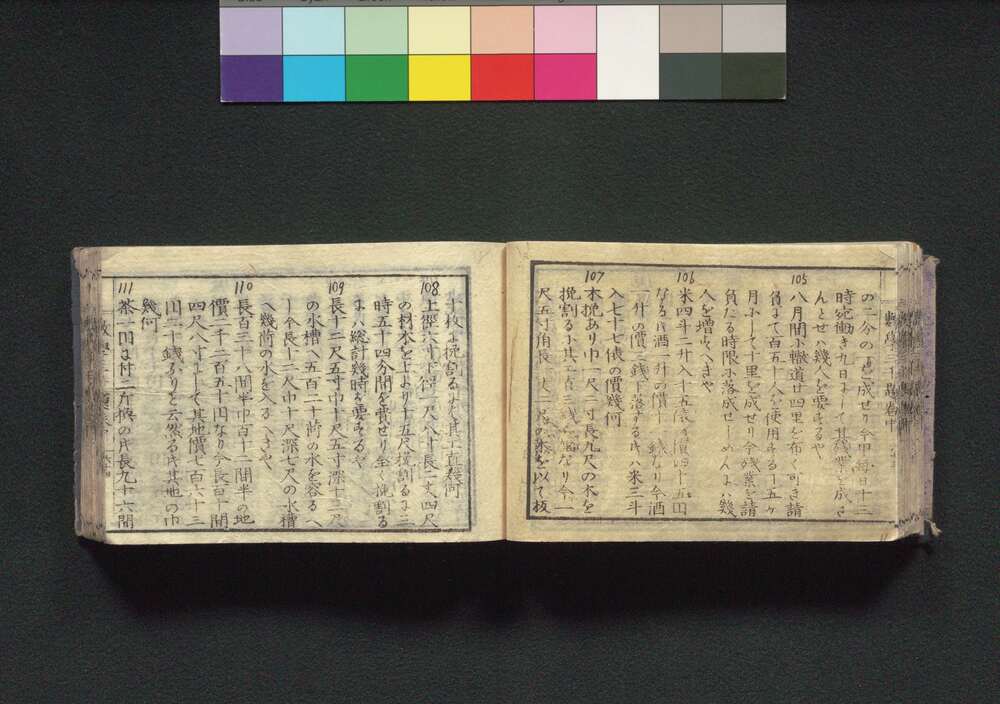 の二分の
時宛働き九日にして其殘業を成さ
んとせハ幾人を要するや
105
八月間に轍道廿四里を布く可き請
負にて百五十人を使用する丁五ヶ
月にして十里を成せり今殘業を請
負たる時限に落成せしめんにハ幾
人を増すへきや
106
米四斗二升入十五俵の價四十五円
なる時酒一升の價十二錢なり今酒
一升の價二錢下落する時ハ米三斗
入七十七俵の價幾何
107
木挽あり巾一尺二寸長九尺の木を
挽割るに其工直三錢なり今一
尺五寸角長二丈一尺の木を以て板
十枚に挽割るときは其工直幾何
108
上徑六寸下徑一尺八寸長二丈四尺
の材木を上より十五尺挽割るに三
時五十四分間を費せり全く挽割る
にハ總計幾時を要するや
109
長十二尺五寸巾十尺五寸深十三尺
の水槽へ五百二十荷の水を容るへ
し今長十二尺巾十尺深七尺の水槽
へ幾荷の水を入るへきや
110
長百三十八間半巾百十二間半の地
價二千二百五十円なり今長百一間
四尺八寸にして其地價七百六十三
円二十錢なりと云然る時其地の巾
幾何
111
茶一円に付二斤換の時長九十六間